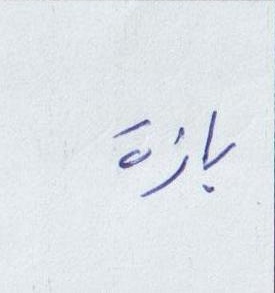 بازة